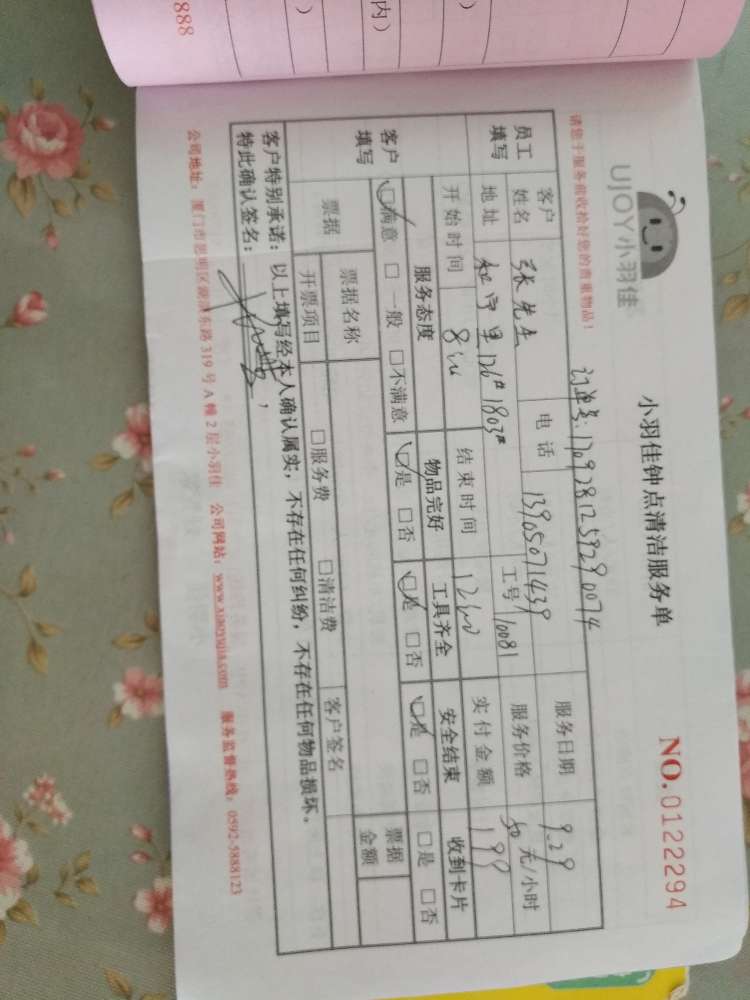 888
内）
）
）
UJOY小羽佳
小羽佳钟点清洁服务单
NO.0122294
请您于服务前收拾好您的贵重物品！
订单号:1709281259290074
员工填写
客户姓名 张先生 电话 13905071439 服务日期 9.29
地址 126# 1803# 工号 10081 服务价格 50 元/小时
开始时间 8:00 结束时间 12:00 实付金额 199
客户填写
服务态度 物品完好 工具齐全 安全结束 收到卡片
☑满意 □一般 □不满意 ☑是 □否 ☑是 □否 ☑是 □否 □是 □否
票据 票据名称 票据金额
开票项目 □服务费 □清洁费 客户签名
客户特别承诺：以上填写经本人确认属实，不存在任何纠纷，不存在任何物品损坏，
特此确认签名：
公司地址：厦门市思明区湖滨东路319号A幢2层小羽佳 公司网站：www.xiaoyujia.com 服务监督热线：0592-5888123